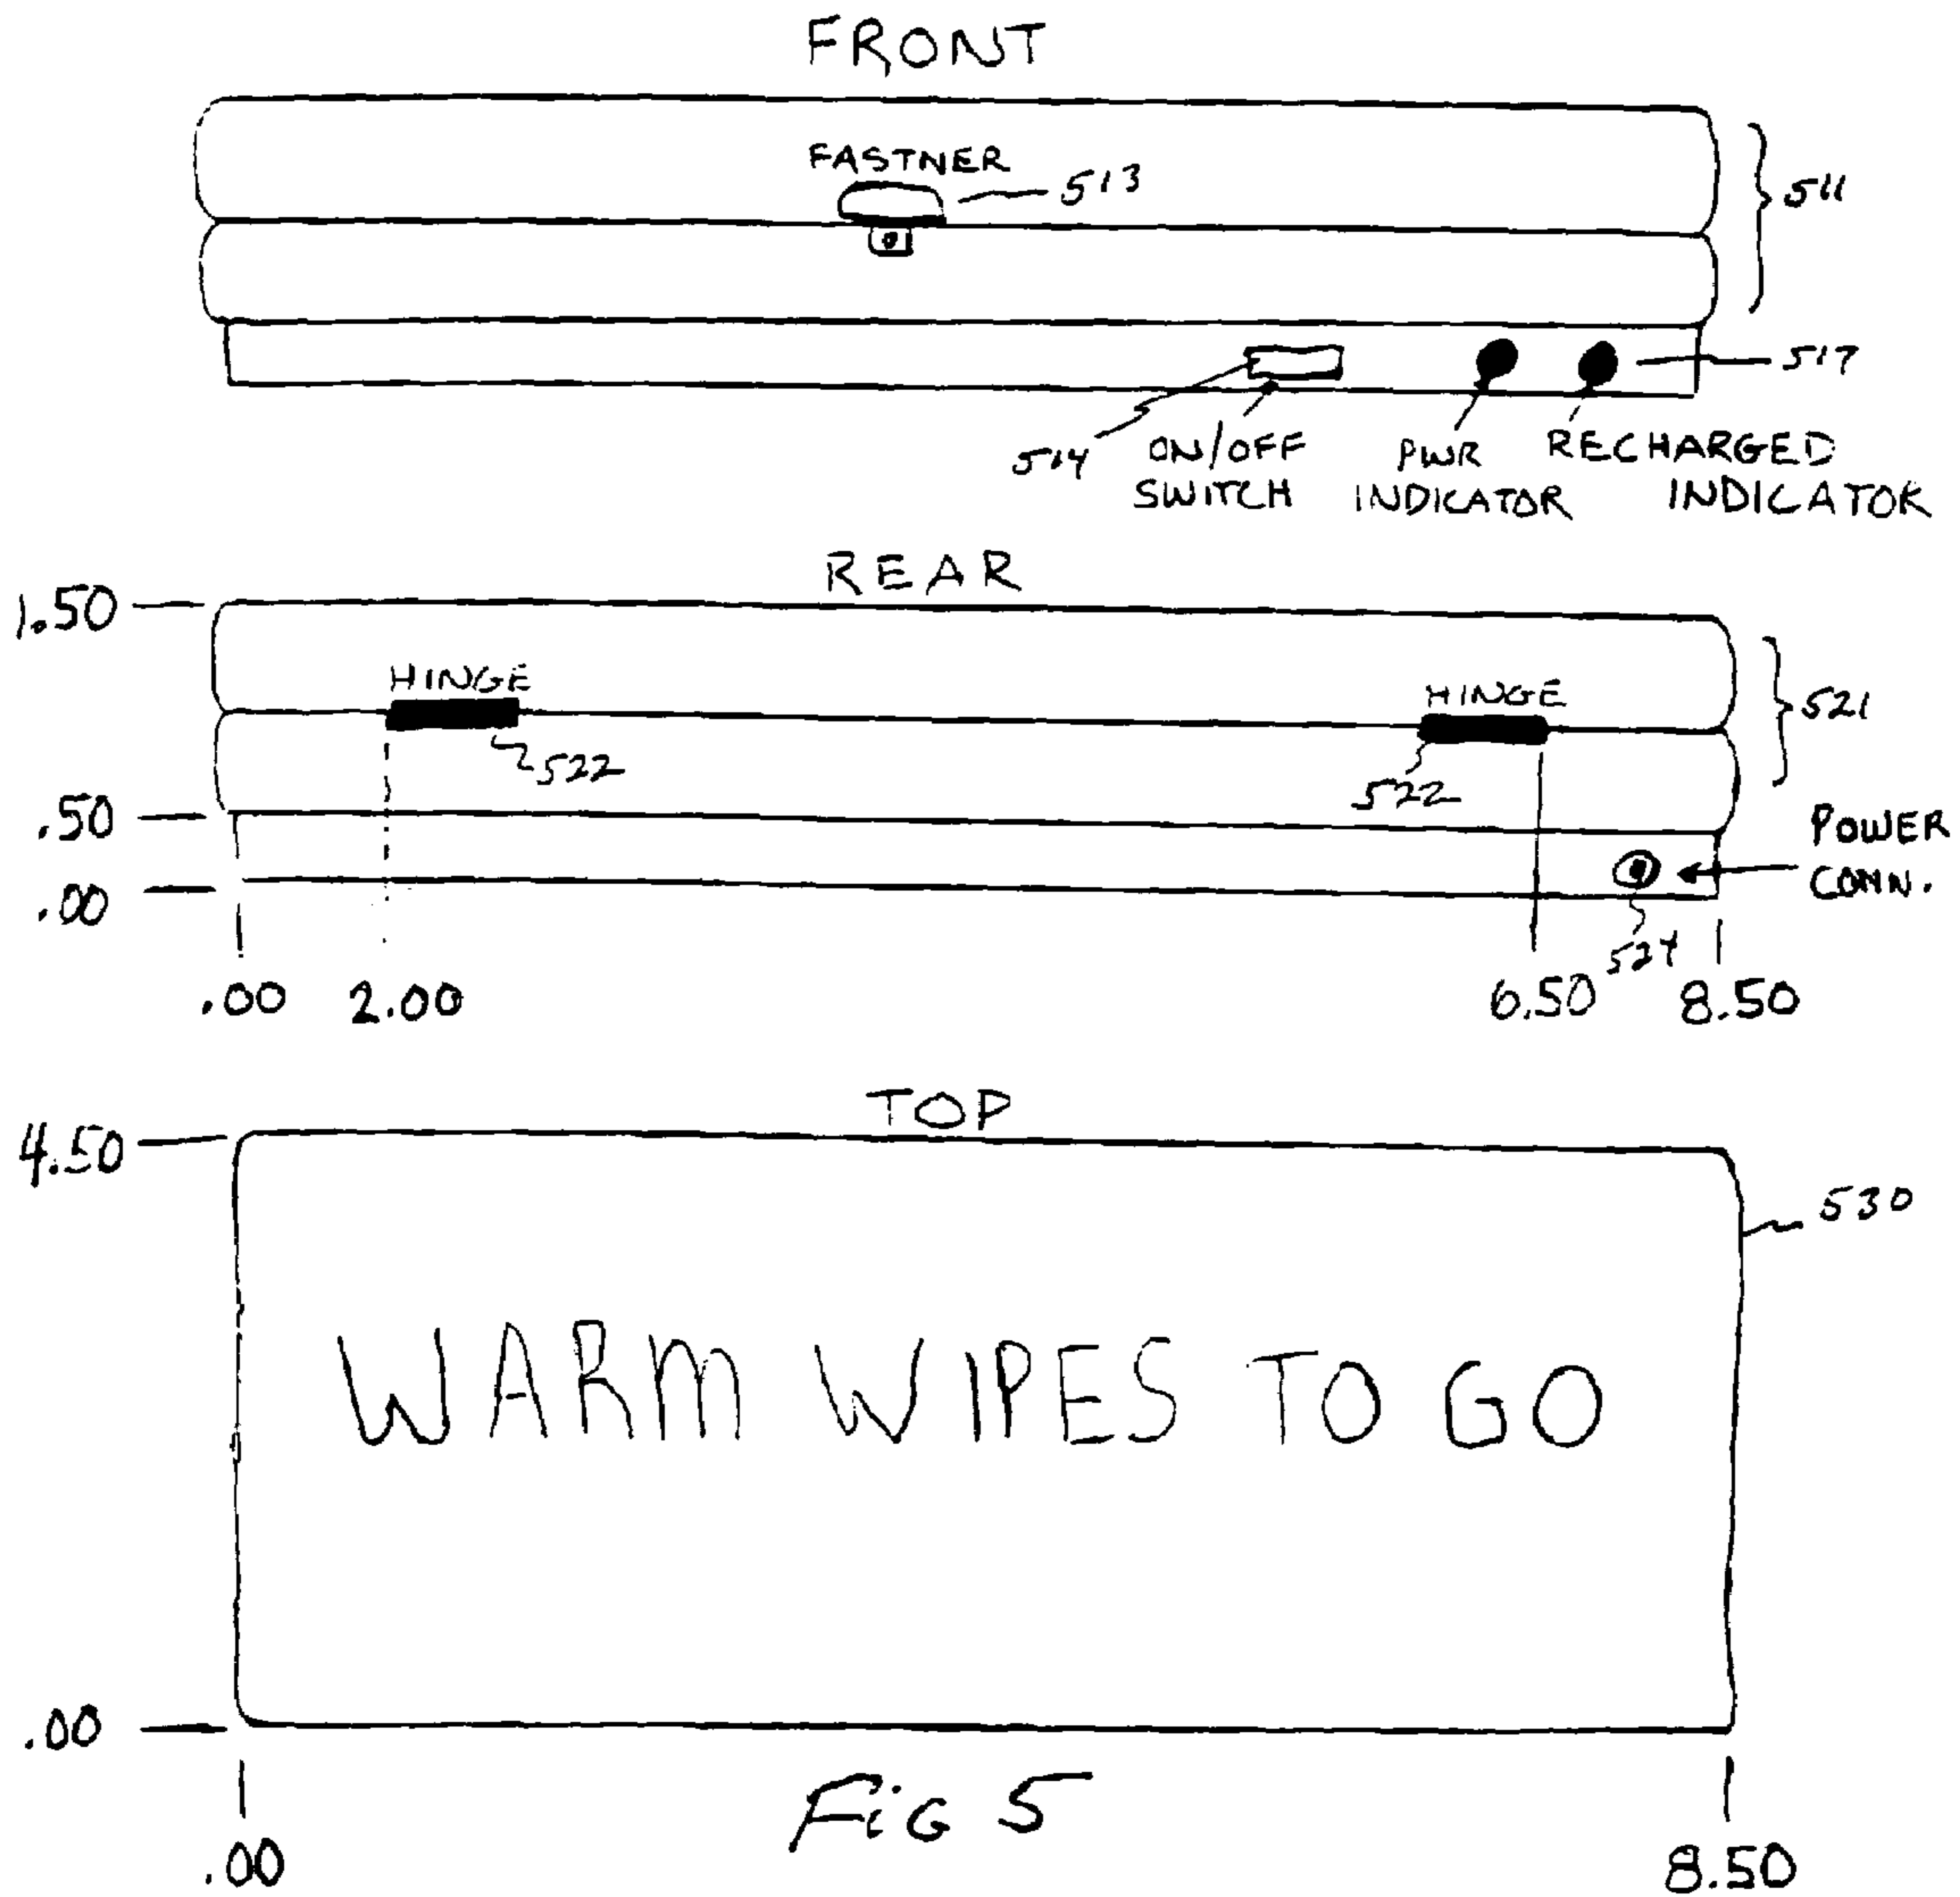 FRONT
FASTNER
513
511
517
514
ON/OFF
SWITCH
PWR
INDICATOR
RECHARGED
INDICATOR
REAR
1.50
HINGE
HINGE
521
522
522
.50
POWER
CONN.
.00
524
.00 2.00 6.50 8.50
TOP
4.50
530
WARM WIPES TO GO
.00
Fig 5
.00 8.50